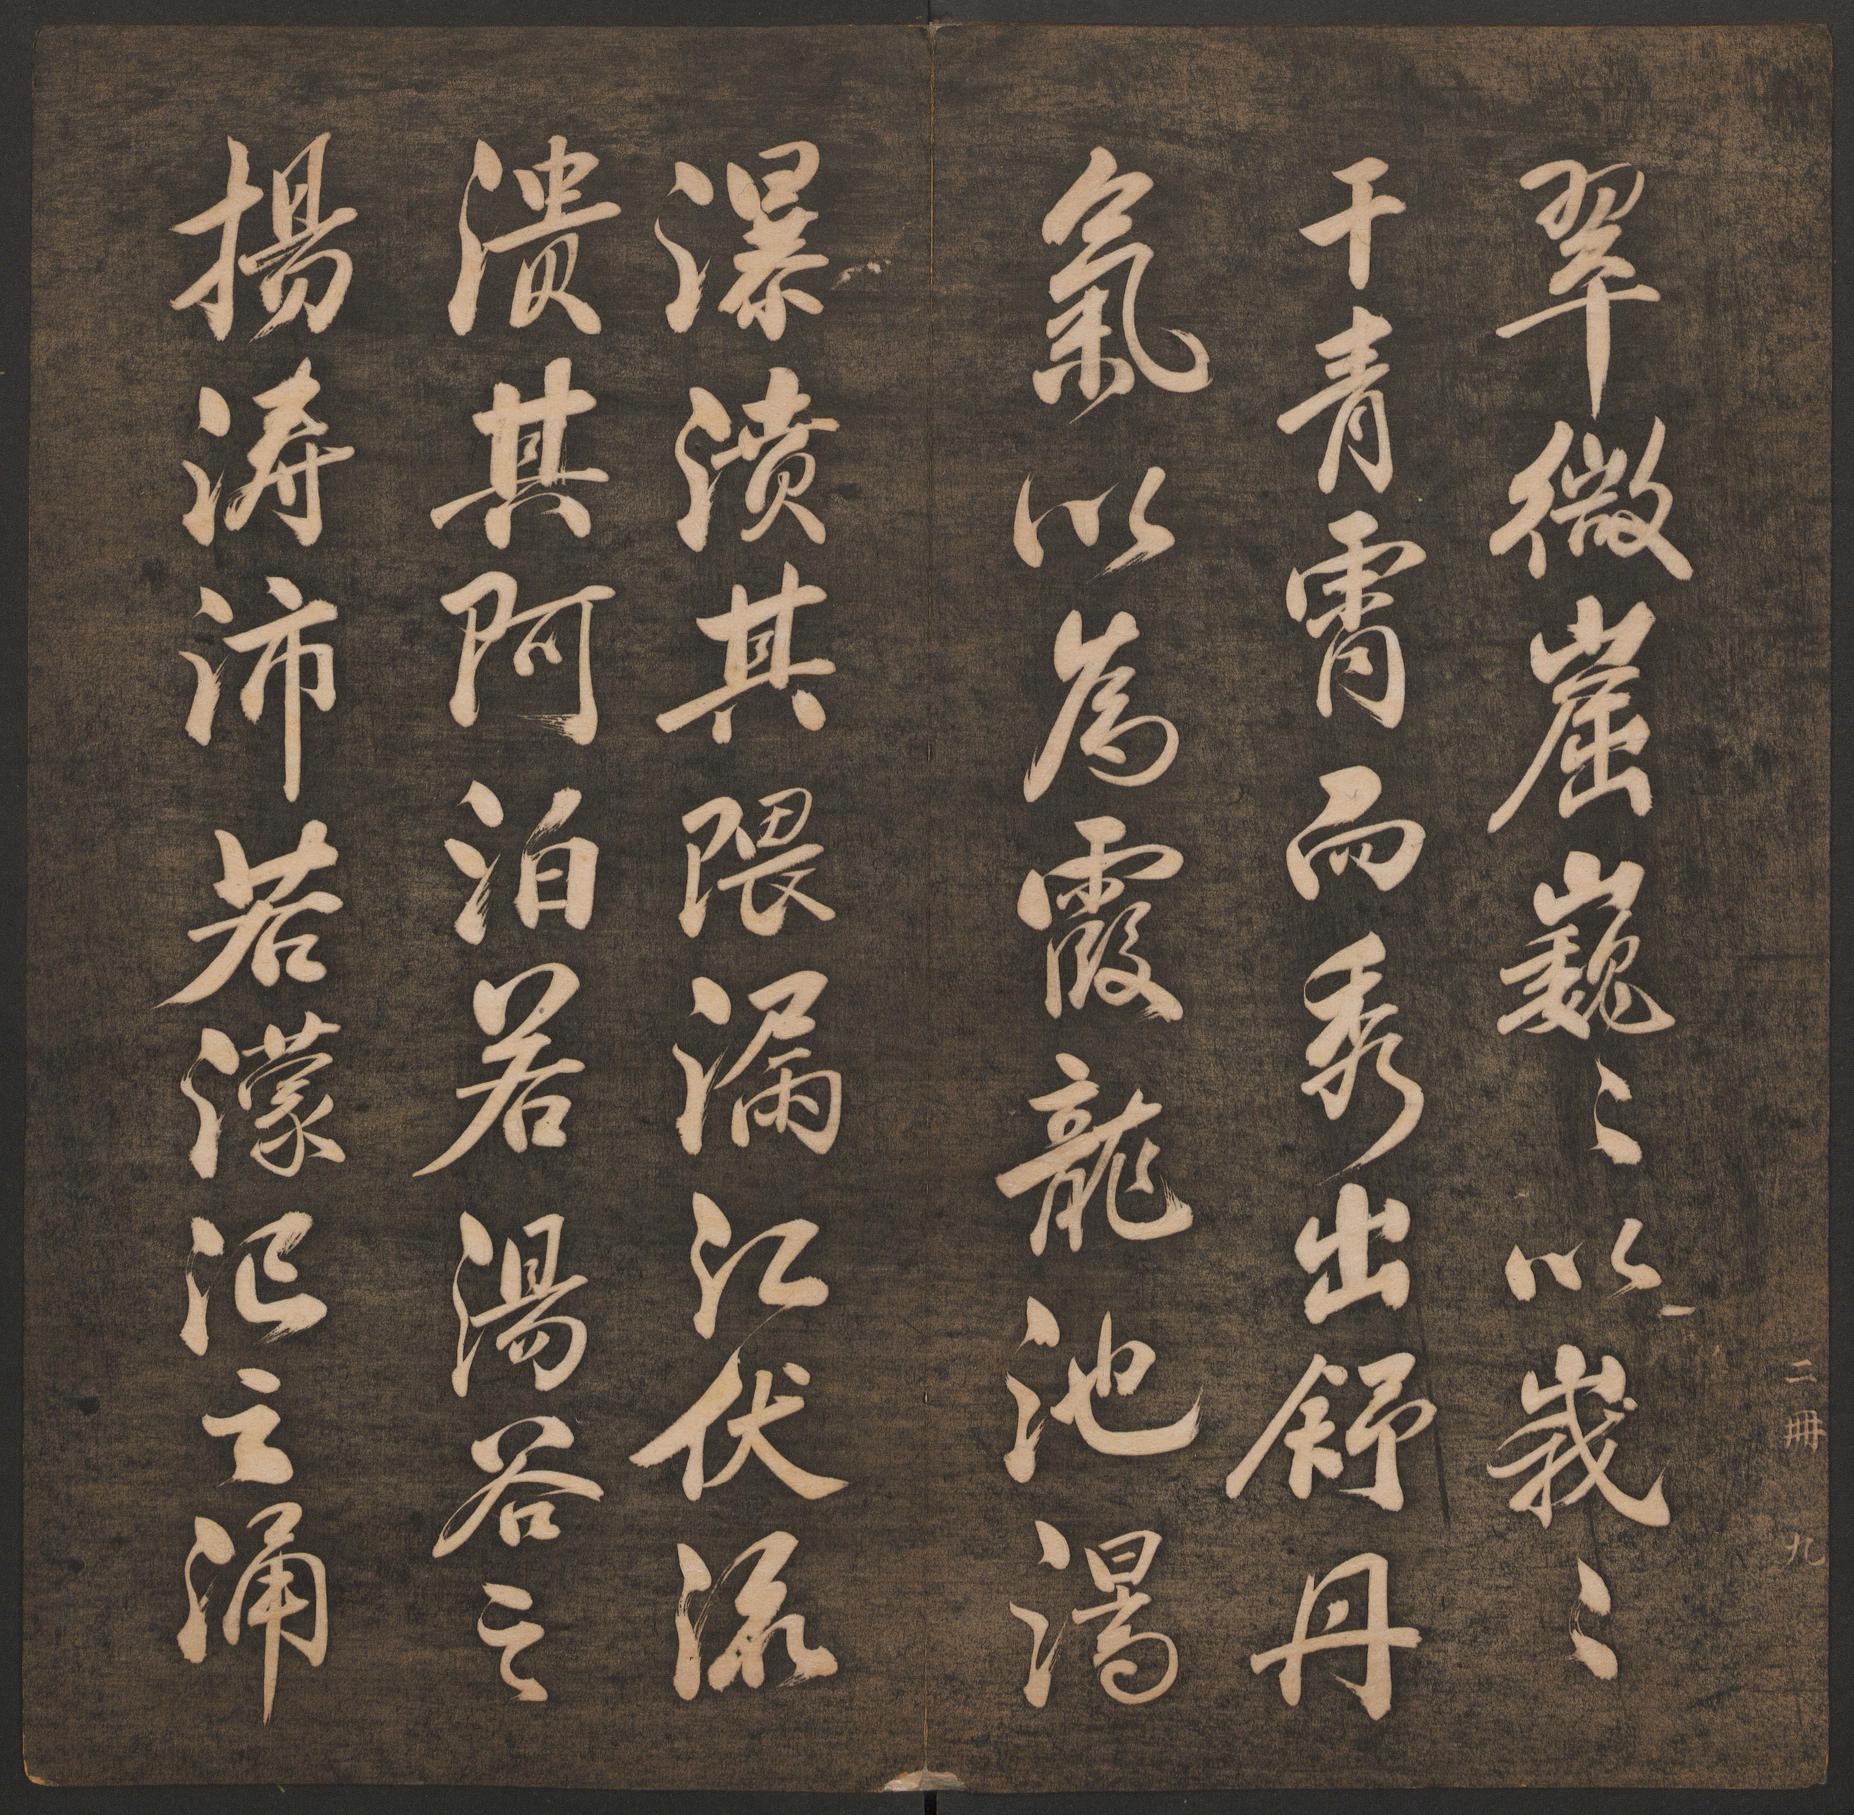 翠微崫巍〻以峩〻
干青霄而秀出舒丹
氣以為霞龍池渴
瀑濆其隈漏江伏流
潰其阿泊若湯谷之
揚涛沛若濛汜之涌
二冊 九